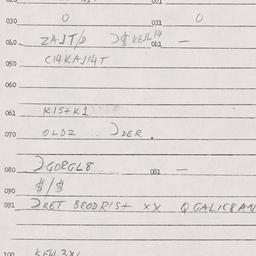 030 0 031 0
040 ZAJT/D Ɔ$KEJL14 041 —
050 CI4KAJI4T
060
061 KIS+K1
070 OLDZ ƆDER.
080 ƆGORGL8 081 —
090 $/$
091 ƆRET BEODRIS+ XX QGALICBAN
100